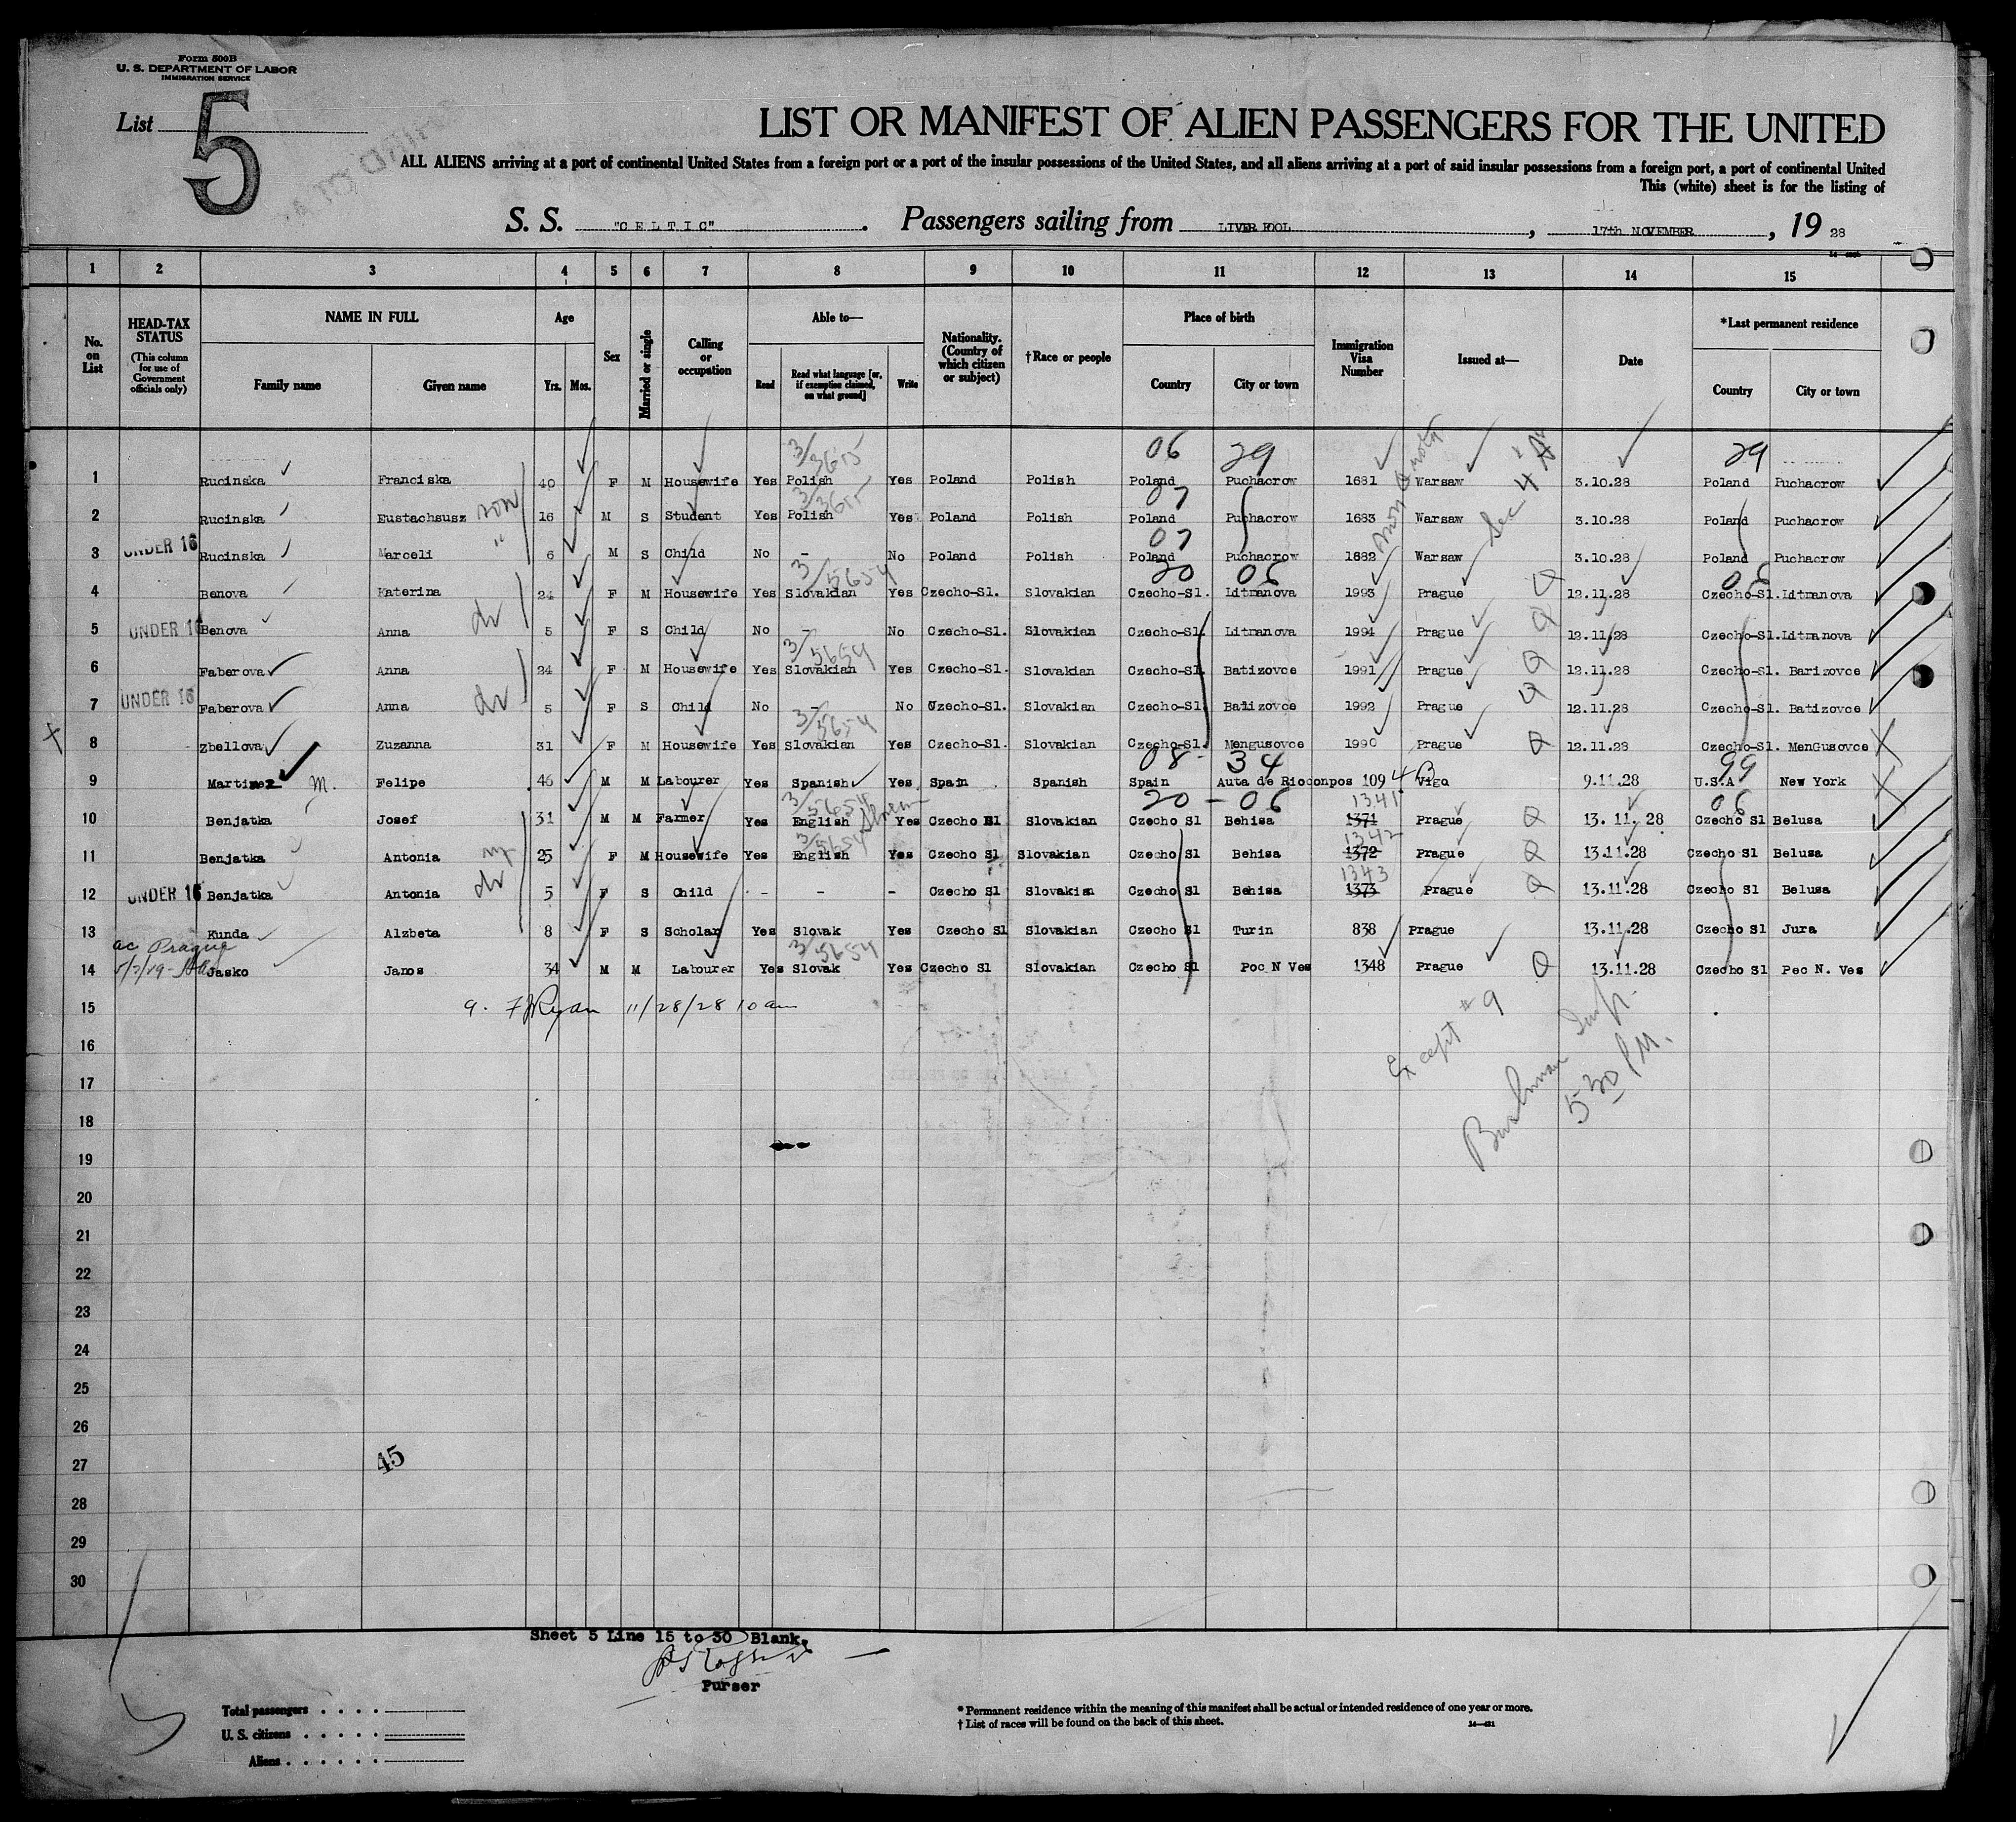 Form 500B
U. S. DEPARTMENT OF LABOR
IMMIGRATION SERVICE
List 5
LIST OR MANIFEST OF ALIEN PASSENGERS FOR THE UNITED
ALL ALIENS arriving at a port of continental United States from a foreign port or a port of the insular possessions of the United States, and all aliens arriving at a port of said insular possessions from a foreign port, a port of continental United
This (white) sheet is for the listing of
S. S. "CELTIC". Passengers sailing from LIVERPOOL, 17th NOVEMBER, 19 28
1 2 3 4 5 6 7 8 9 10 11 12 13 14 15
No. on List
HEAD-TAX STATUS
(This column for use of Government officials only)
NAME IN FULL
Family name
Given name
Age
Yrs. Mos.
Sex
Married or single
Calling or occupation
Able to—
Read
Read what language [or, if exemption claimed, on what ground]
Write
Nationality. (Country of which citizen or subject)
†Race or people
Place of birth
Country
City or town
Immigration Visa Number
Issued at—
Date
*Last permanent residence
Country
City or town
3/3615 06 29 non quota Sec 4 A 29
1 Rucinska Franciska 40 F M Housewife Yes Polish Yes Poland Polish Poland Puchacrow 1681 Warsaw 3.10.28 Poland Puchacrow
3/3615 07
2 Rucinska Eustachsusz son 16 M S Student Yes Polish Yes Poland Polish Poland Puchacrow 1683 Warsaw 3.10.28 Poland Puchacrow
07
3 UNDER 16 Rucinska Marceli " 6 M S Child No - No Poland Polish Poland Puchacrow 1682 Warsaw 3.10.28 Poland Puchacrow
3/5654 20 06 06
4 Benova Katerina 24 F M Housewife Yes Slovakian Yes Czecho-Sl. Slovakian Czecho-Sl. Litmanova 1993 Prague Q 12.11.28 Czecho-Sl. Litmanova
5 UNDER 16 Benova Anna dr 5 F S Child No - No Czecho-Sl. Slovakian Czecho-Sl. Litmanova 1994 Prague Q 12.11.28 Czecho-Sl. Litmanova
3/5654
6 Faberova Anna 24 F M Housewife Yes Slovakian Yes Czecho-Sl. Slovakian Czecho-Sl. Batizovce 1991 Prague Q 12.11.28 Czecho-Sl. Barizovce
7 UNDER 16 Faberova Anna dr 5 F S Child No - No Czecho-Sl. Slovakian Czecho-Sl. Batizovce 1992 Prague Q 12.11.28 Czecho-Sl. Batizovce
3/5654
X 8 Zbellova Zuzanna 31 F M Housewife Yes Slovakian Yes Czecho-Sl. Slovakian Czecho-Sl. Mengusovce 1990 Prague Q 12.11.28 Czecho-Sl. MenGusovce X
08 - 34 99
9 Martinez M. Felipe 46 M M Labourer Yes Spanish Yes Spain Spanish Spain Auta de Rioconpos 109 4 B Vigo 9.11.28 U.S.A New York X
3/5654 20 - 06 1341 06
10 Benjatka Josef 31 M M Farmer Yes English Yes Czecho Sl Slovakian Czecho Sl Behisa 1371 Prague Q 13.11.28 Czecho Sl Belusa
3/5654 1342
11 Benjatka Antonia wf 25 F M Housewife Yes English Yes Czecho Sl Slovakian Czecho Sl Behisa 1372 Prague Q 13.11.28 Czecho Sl Belusa
1343
12 UNDER 16 Benjatka Antonia dr 5 F S Child - - - Czecho Sl Slovakian Czecho Sl Behisa 1373 Prague Q 13.11.28 Czecho Sl Belusa
13 Kunda Alzbeta 8 F S Scholar Yes Slovak Yes Czecho Sl Slovakian Czecho Sl Turin 838 Prague 13.11.28 Czecho Sl Jura
ac Prague 3/5654
14 Jasko Janos 34 M M Labourer Yes Slovak Yes Czecho Sl Slovakian Czecho Sl Poc N Ves 1348 Prague Q 13.11.28 Czecho Sl Pec N. Ves
15 9. F J Ryan 11/28/28 10 am
Except # 9
16
17
Bushman Insp.
5 30 P.M.
18
19
20
21
22
23
24
25
26
27
45
28
29
30
Sheet 5 Line 15 to 30 Blank.
Purser
Total passengers . . . .
U. S. citizens . . . . .
Aliens . . . . . .
* Permanent residence within the meaning of this manifest shall be actual or intended residence of one year or more.
† List of races will be found on the back of this sheet.
14—421